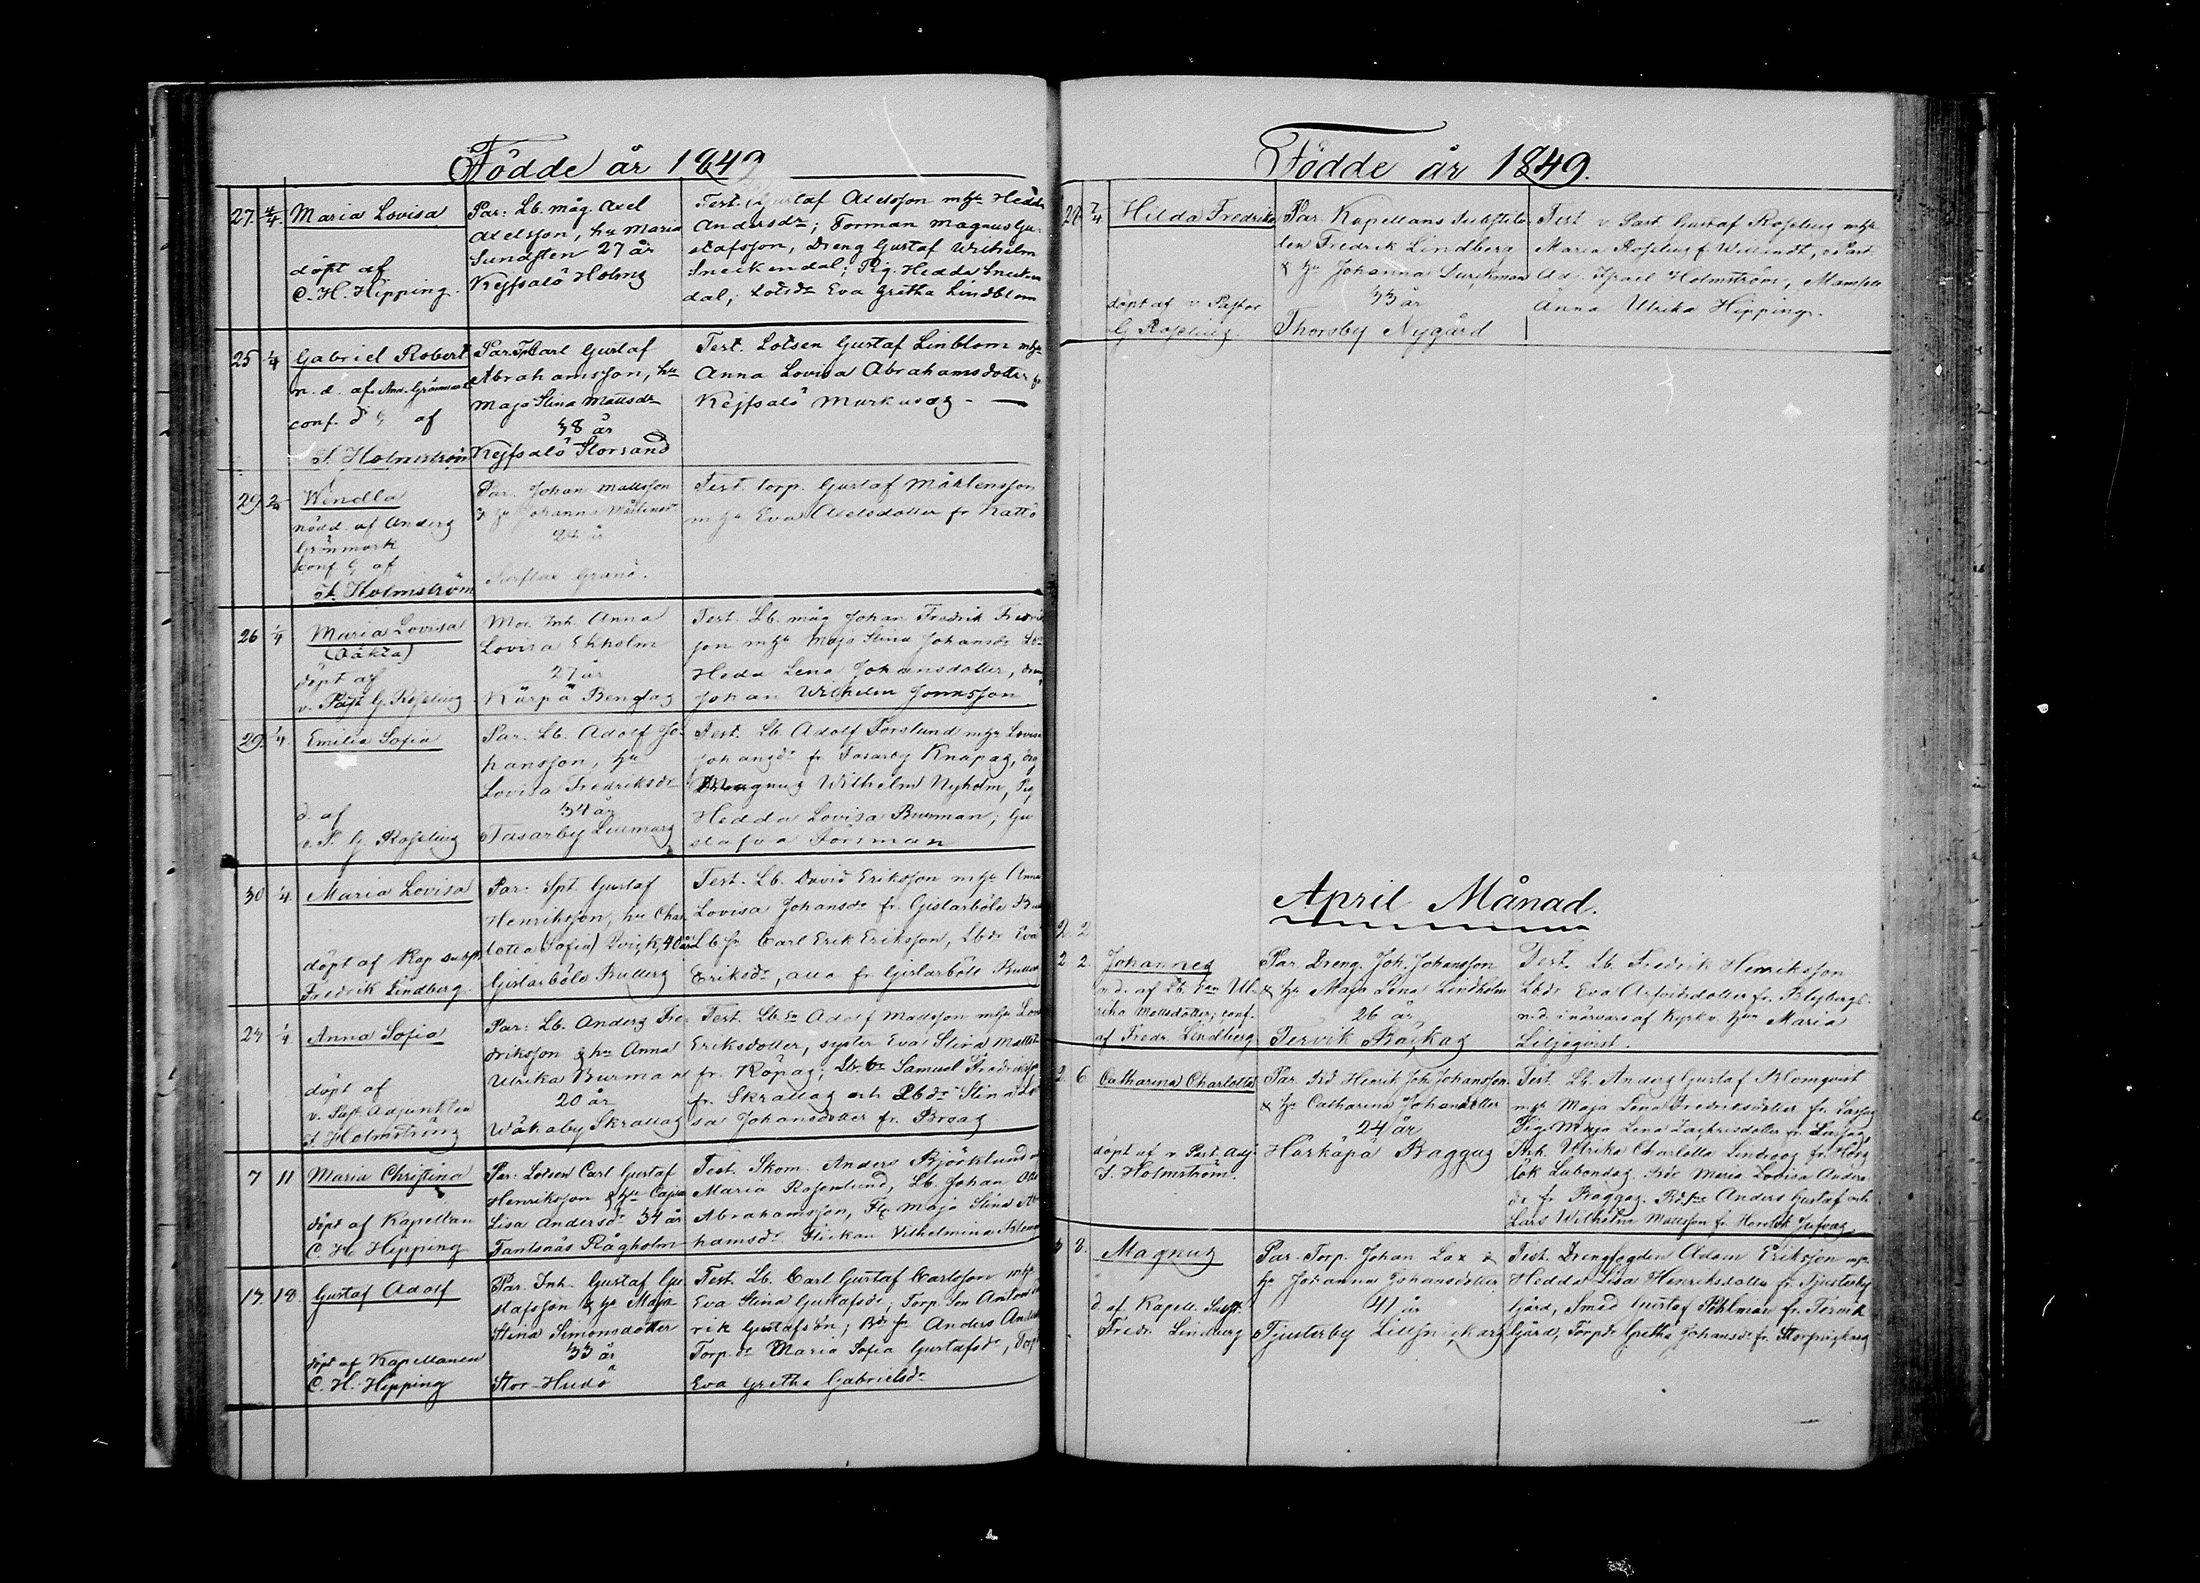 Födde år 1849
27. 4/4. Maria Lovisa
döpt af
C. H. Hipping.
Par: Lb. måg Axel
Axelsson, hu Maria
Sundsten 27 år
Kejfsalö Holmg
Test. Gustaf Axelsson mhu Hedda
Andersdr; Forman Magnus Gu-
stafsson, Dreng Gustaf Wilhelm
Sneckendal; Pig. Hedda Snecken
dal; Lotsdr Eva Gretha Lindblom
25 1/4 Gabriel Robert
n. d. af And. Grönmark
conf. af
I. Holmström
Par Carl Gustaf
Abrahamsson, hu
Maja Stina Mattsdr
38 år
Kejfsalö Storsand
Test. Lotsen Gustaf Linblom mhu
Anna Lovisa Abrahamsdotter fr
Kejfsalö Markusas
29. 2/4 Wendla
nödd. af Anders
Grönmark
conf af
I. Holmström
Par. Johan Mattsson
& hu Johanna Mårtensdr
24 år
Sarfsar Granö.
Test. torp. Gustaf Mårtensson
mhu Eva Axelsdotter fr Kattö
26 1/4 Maria Lovisa
(Oäkta)
döpt af
v. Past G. Roselius
Mor Inh. Anna
Lovisa Ekholm
27 år
Kärpä Bengtas
Test. Lb. måg Johan Fredrik Fredrik
son mhu Maja Stina Johansdr Lbdr
Heda Lena Johansdotter, dren
Johan Wilhelm Jonnsson
29. 1/4. Emilia Sofia
d. af
v. P. G. Roselius
Par. Lb. Adolf Jo-
hansson, hu
Lovisa Fredriksdr
34 år
Tasarby Lillmars
Test. Lb Adolf Forslund mhu Lovisa
Johansdr fr Tasarby Knapas, drg
Magnus Wilhelm Nyholm, Pig
Hedda Lovisa Burman; Gu
stafva Forsman
30 1/4. Maria Lovisa
döpt af Kap subst
Fredrik Lindberg.
Par: Spt Gustaf
Henriksson, hu Char
lotta (Sofia) Dvick, 40 år
Gislarböle Bullers
Test. Lb. David Eriksson mhu Anna
Lovisa Johansdr fr. Gislarböle Bull
Lb sn Carl Erik Eriksson, Lbdr Eva
Eriksdr, alla fr Gislarböle Bullers
24 1/4 Anna Sofia
döpt af
v. Past. Adjunkten
I. Holmström
Par: Lb. Anders Fre-
driksson & hu Anna
Ulrika Burman
20 år
Wåkaby Skrallas
Test. Lb. sn Adolf Mattsson mhu Lovi
Eriksdotter, syster Eva Stina Mattsdr
fr. Röpas; Lb. sn Samuel Fredriksson
fr. Skrallas och Lbdr Stina Lovi
sa Johansdotter fr. Broas
7 11 Maria Christina
döpt af Kapellan
C. H. Hipping
Par: Lotsen Carl Gustaf
Henriksson & hu Cajsa
Lisa Andersdr 34 år
Fantsnäs Rågholm
Test. Skom. Anders Björklund
Maria Rosenlund, Lb. Johan Otto
Abrahamsson, Fl. Maja Stina Abra
hamsdr Flickan Vilhelmina Blom
17. 18. Gustaf Adolf
döpt af Kapellanen
C. H. Hipping
Par. Inh. Gustaf Gu
stafsson & hu Maja
Stina Simonsdotter
33 år
Stor-Hudö
Test. Lb. Carl Gustaf Carlsson mhu
Eva Stina Gustafsdr; Torp. Son Anton Hen
rik Gustafson; Bdr sn Anders Anders
Torp. dr Maria Sofia Gustafsdr,
Eva Gretha Gabrielsdr
Födde år 1849.
7/4 Hilda Fredrika
döpt af v Pastor
G Roselius.
Par. Kapellans Substitu
ten Fredrik Lindberg
& hu Johanna
33 år
Thorsby Nygård
Test v. Past. Gustaf Roselius mhu
Maria Roselius f. Willindt, v Past.
Ad. Israel Holmström, Mamsell
Anna Ulrika Hipping.
April Månad.
2 2
2 2. Johannes
n.d. af Lb. Eva Ul-
rika Mattsdotter; conf.
af Fredr. Lindberg
Par. Dreng. Joh. Johansson
& hu Maja Lena Lindholm
26 år
Tervik Backas
Test. Lb. Fredrik Henriksson
Lbdr Eva Arfvidsdotter fr. Blybergs.
n.d. i närvaro af Kyrkv. hu Maria
Liljeqvist.
2. 6. Catharina Charlotta
döpt af v. Past. Adj.
I. Holmström.
Par. Bd Henrik Joh. Johansson
& hu Catharina Johansdotter
24 år
Härkäpä Baggas
Test. Lb. Anders Gustaf Blomqvist
mhu Maja Lena Fredriksdotter fr. Lassas
Pig. Maja Lena Zachrisdotter fr. Lassas,
Ulrika Charlotta Lindroos fr. Hörs
bäk Labondas. Bdr Maria Lovisa Anders
dr fr Baggas. Bd. sn Anders Gustaf och
Lars Wilhelm Mattsson fr.
3 8. Magnus
d af Kapell. Subst.
Fredr. Lindberg
Par. Torp. Johan Lax &
hu Johanna Johansdotter
41 år
Tjusterby Lillsnickars
Test. Drengfogden Adam Eriksson mhu
Hedda Lisa Henriksdotter fr. Tjusterby
Gård, Smed Gustaf Pehlman fr. Tervik
Gård, Torpdr Gretha Johansdr fr. Storsnickars